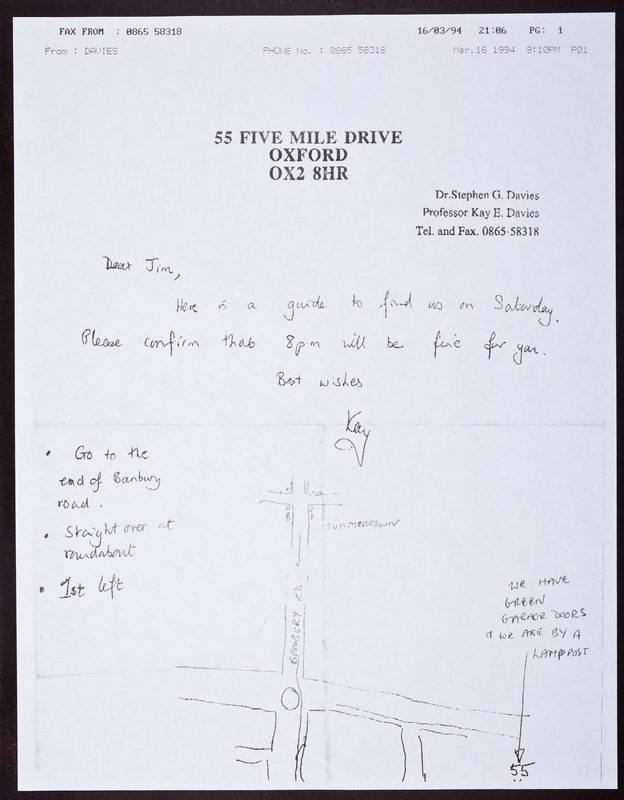 FAX FROM : 0865 58318 16/03/94 21:06 PG: 1
From : DAVIES PHONE No. : 0865 58318 Mar.16 1994 9:10PM P01
55 FIVE MILE DRIVE
OXFORD
OX2 8HR
Dr.Stephen G. Davies
Professor Kay E. Davies
Tel. and Fax. 0865-58318
Dear Jim,
Here is a guide to find us on Saturday.
Please confirm that 8pm will be fine for you.
Best wishes
Kay
• Go to the
end of Banbury
road.
• Straight over at
roundabout
• 1st left
SUMMERTOWN
BANBURY RD
WE HAVE
GREEN
GARAGE DOORS
& WE ARE BY A
LAMPPOST
55